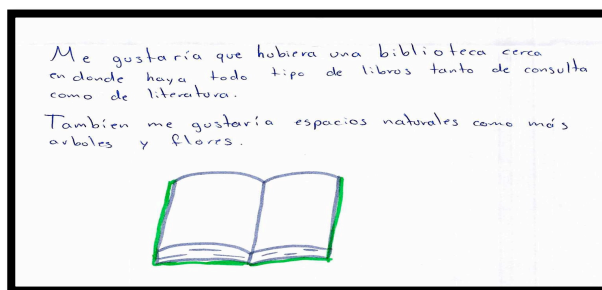 Me gustaría que hubiera una biblioteca cerca
en donde haya todo tipo de libros tanto de consulta
como de literatura.
Tambien me gustaría espacios naturales como más
arboles y flores.